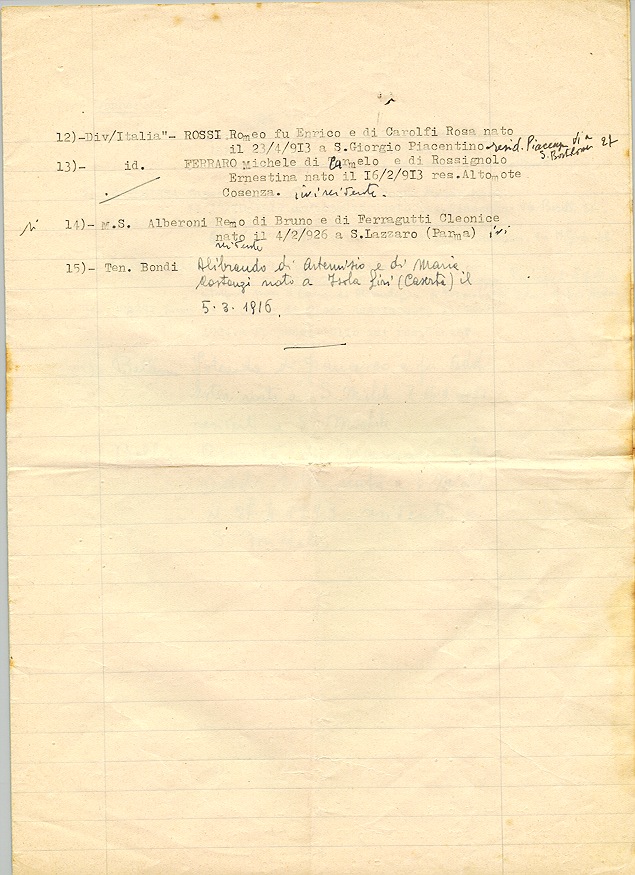 12)-Div/Italia"- ROSSI Romeo fu Enrico e di Carolfi Rosa nato
il 23/4/913 a S.Giorgio Piacentino resid. Piacenza
S. 27
13)- id. FERRARO Michele di Carmelo e di Rossignolo
Ernestina nato il I6/2/9I3 res.Altomote
Cosenza. ivi residente.
sì 14)- M.S. Alberoni Remo di Bruno e di Ferragutti Cleonice
nato il 4/2/926 a S.Lazzaro (Parma) ivi
residente
15)- Ten. Bondi Alibrando di Artemisio e di Maria
Costanzi nato a Isola Liri (Caserta) il
5.3.1916.